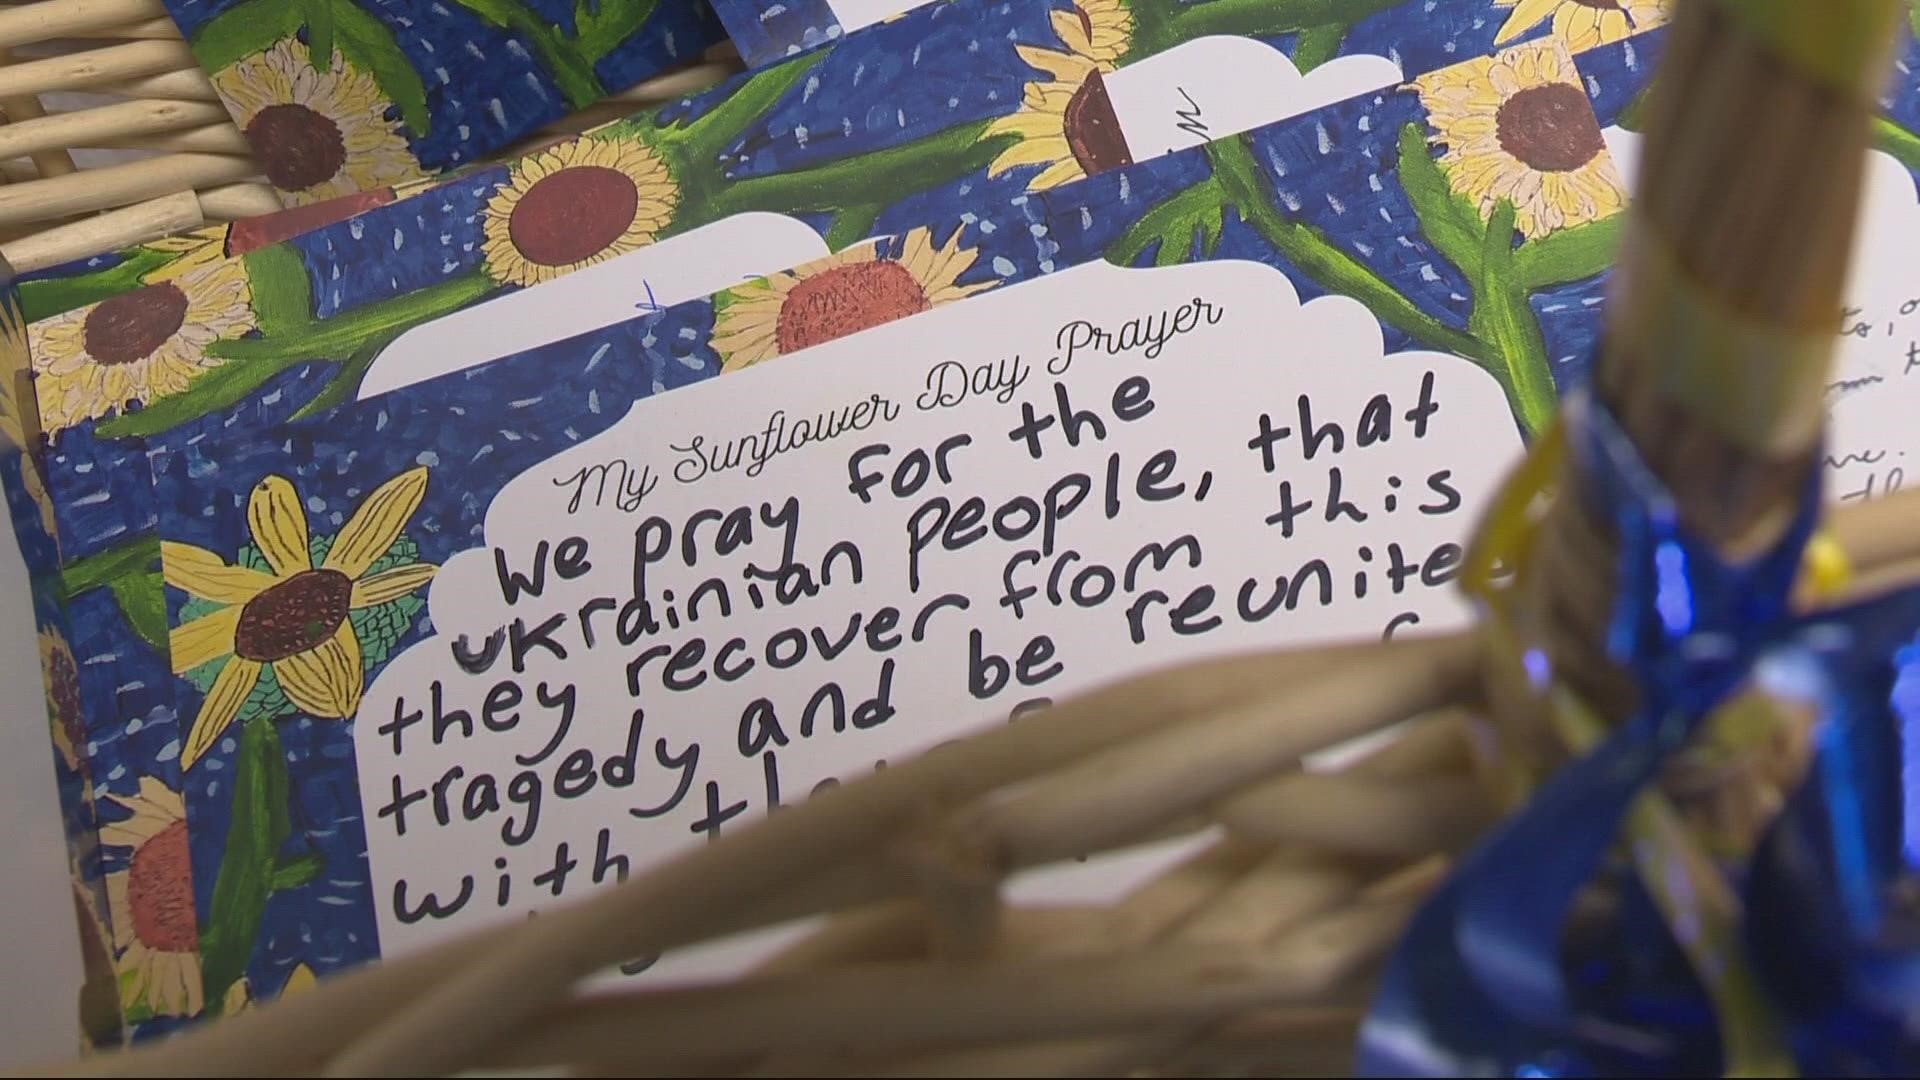 My Sunflower Day Prayer
We pray for the
ukrainian people, that
they recover from this
tragedy and be reunite
with